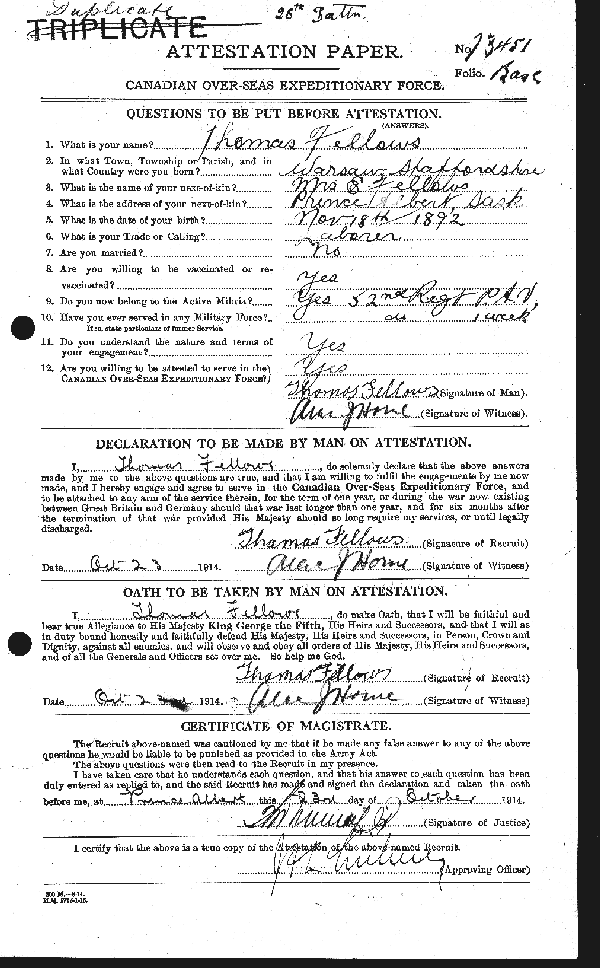 Duplicate
26th Battn.
TRIPLICATE
ATTESTATION PAPER.
No. 73451
Folio. Base
CANADIAN OVER-SEAS EXPEDITIONARY FORCE.
QUESTIONS TO BE PUT BEFORE ATTESTATION.
(ANSWERS).
1. What is your name? Thomas Fellows
2. In what Town, Township or Parish, and in
what Country were you born? Warsaw Staffordshire
3. What is the name of your next-of-kin? Mrs E Fellows
4. What is the address of your next-of-kin? Prince Albert, Sask
5. What is the date of your birth? Nov 18th 1892
6. What is your Trade or Calling? Laborer
7. Are you married? No
8. Are you willing to be vaccinated or re-
vaccinated? Yes
9. Do you now belong to the Active Militia? Yes 52nd Regt P.A.V.
10. Have you ever served in any Military Force? as 1 week
If so, state particulars of former Service.
11. Do you understand the nature and terms of
your engagement? Yes
12. Are you willing to be attested to serve in the
CANADIAN OVER-SEAS EXPEDITIONARY FORCE? Yes
Thomas Fellows (Signature of Man).
Alec J Horne (Signature of Witness).
DECLARATION TO BE MADE BY MAN ON ATTESTATION.
I, Thomas Fellows, do solemnly declare that the above answers
made by me to the above questions are true, and that I am willing to fulfil the engagements by me now
made, and I hereby engage and agree to serve in the Canadian Over-Seas Expeditionary Force, and
to be attached to any arm of the service therein, for the term of one year, or during the war now existing
between Great Britain and Germany should that war last longer than one year, and for six months after
the termination of that war provided His Majesty should so long require my services, or until legally
discharged.
Thomas Fellows (Signature of Recruit)
Date Oct 23 1914. Alec J Horne (Signature of Witness)
OATH TO BE TAKEN BY MAN ON ATTESTATION.
I, Thomas Fellows, do make Oath, that I will be faithful and
bear true Allegiance to His Majesty King George the Fifth, His Heirs and Successors, and that I will as
in duty bound honestly and faithfully defend His Majesty, His Heirs and Successors, in Person, Crown and
Dignity, against all enemies, and will observe and obey all orders of His Majesty, His Heirs and Successors,
and of all the Generals and Officers set over me. So help me God.
Thomas Fellows (Signature of Recruit)
Date Oct 23 1914. Alec J Horne (Signature of Witness)
CERTIFICATE OF MAGISTRATE.
The Recruit above-named was cautioned by me that if he made any false answer to any of the above
questions he would be liable to be punished as provided in the Army Act.
The above questions were then read to the Recruit in my presence.
I have taken care that he understands each question, and that his answer to each question has been
duly entered as replied to, and the said Recruit has made and signed the declaration and taken the oath
before me, at Prince Albert this 23rd day of October 1914.
(Signature of Justice)
I certify that the above is a true copy of the Attestation of the above-named Recruit.
(Approving Officer)